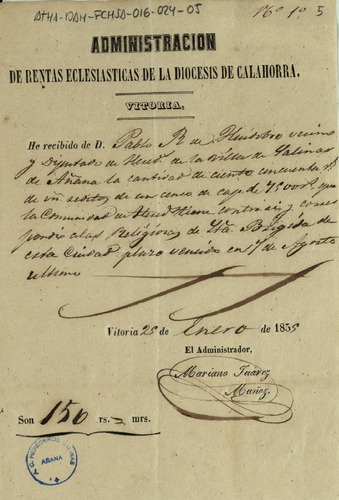 ATHA-DAH-FCHSA-016-024-05
16º 1º 5
ADMINISTRACION
DE RENTAS ECLESIASTICAS DE LA DIOCESIS DE CALAHORRA.
VITORIA,
He recibido de D. Pablo R de Huidobro vecino
y Diputado de Hered. de la Villa de Salinas
de Añana la cantidad de ciento cincuenta rs
de vn reditos de un censo de cap. de que
la Comunidad de Hered tiene contra si y corres
pondia a las Religiosas de Sta Brigida de
esta Ciudad plazo vencido en 1º de Agosto
ultimo
Vitoria 25 de Enero de 1855
El Administrador,
Mariano Juarez
Muñoz
Son 150 rs. mrs.
AÑANA